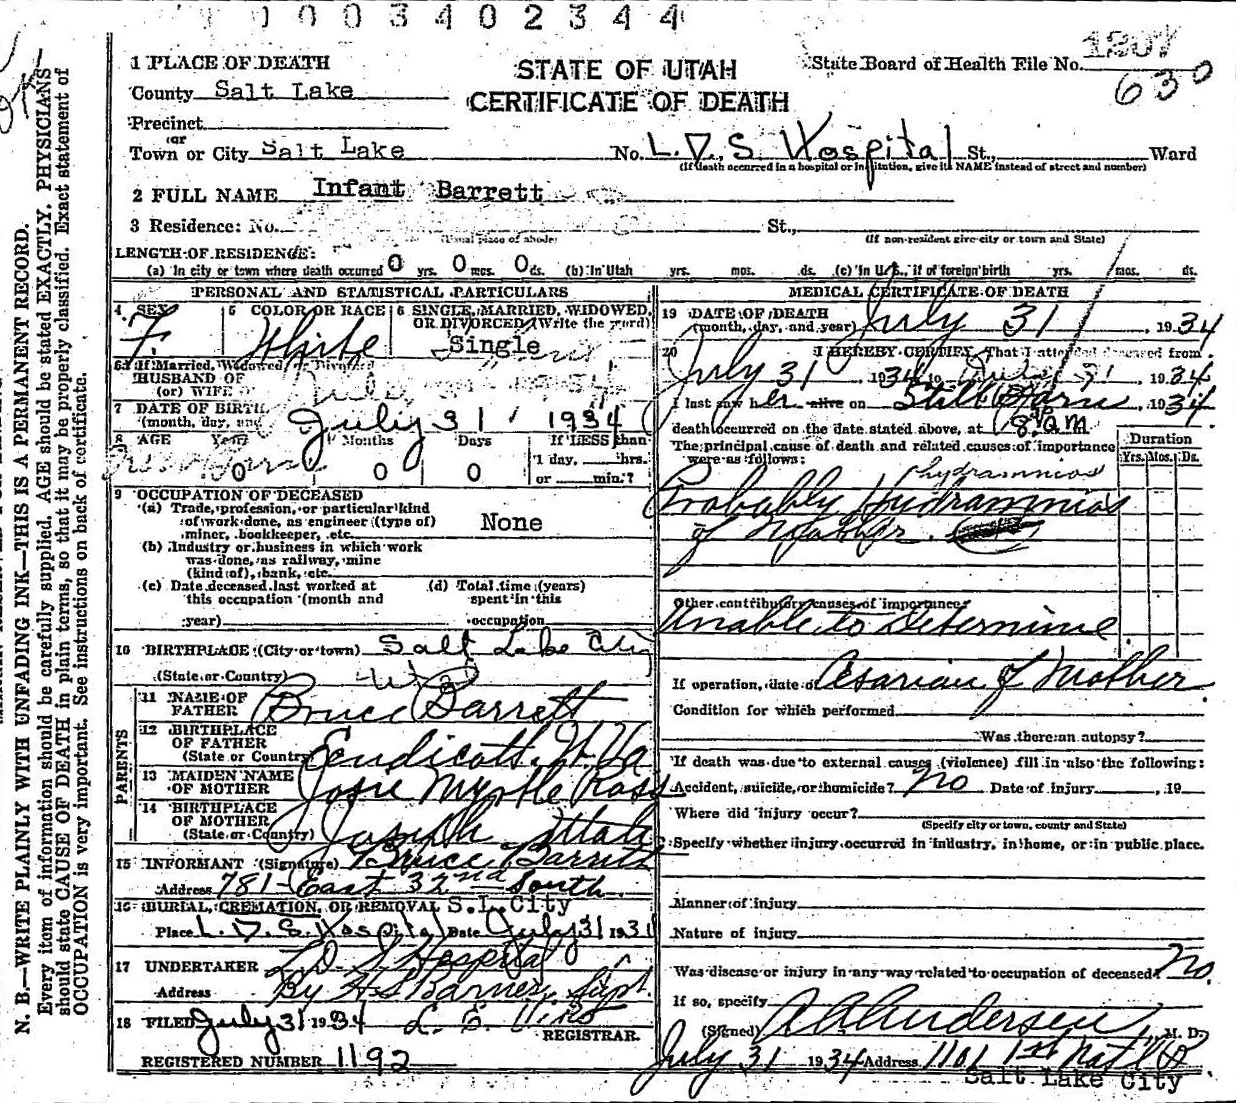 1003402344
1 PLACE OF DEATH
STATE OF UTAH
CERTIFICATE OF DEATH
State Board of Health File No. 1207
630
County Salt Lake
Precinct
or
Town or City Salt Lake No. L.D.S. Hospital St., Ward
(If death occurred in a hospital or institution, give its NAME instead of street and number)
2 FULL NAME Infant Barrett
3 Residence: No. St.,
(Usual place of abode) (If non-resident give city or town and State)
LENGTH OF RESIDENCE:
(a) In city or town where death occurred 0 yrs. 0 mos. 0 ds. (b) In Utah yrs. mos. ds. (c) In U.S., if of foreign birth yrs. mos. ds.
PERSONAL AND STATISTICAL PARTICULARS
4 SEX 5 COLOR OR RACE 6 SINGLE, MARRIED, WIDOWED, OR DIVORCED (Write the word)
F. White Single
6a If Married, Widowed, or Divorced
HUSBAND OF
(or) WIFE OF
7 DATE OF BIRTH
(month, day, and July 31, 1934
8 AGE Years Months Days If LESS than
0 0 0 1 day, hrs.
or min.?
9 OCCUPATION OF DECEASED
(a) Trade, profession, or particular kind
of work done, as engineer (type of)
miner, bookkeeper, etc. None
(b) Industry or business in which work
was done, as railway, mine
(kind of), bank, etc.
(c) Date deceased last worked at (d) Total time (years)
this occupation (month and spent in this
year) occupation
10 BIRTHPLACE (City or town) Salt Lake City
(State or Country)
PARENTS
11 NAME OF
FATHER Bruce Barrett
12 BIRTHPLACE
OF FATHER
(State or Country) Endicott, W. Va
13 MAIDEN NAME
OF MOTHER Josie Myrtle Ross
14 BIRTHPLACE
OF MOTHER
(State or Country) Joseph Utah
15 INFORMANT (Signature) Bruce Barrett
Address 781 - East 32nd South
16 BURIAL, CREMATION, OR REMOVAL S.L. City
Place L.D.S. Hospital Date July 31 193
17 UNDERTAKER L.D.S. Hospital
Address By H S Barnes, Supt.
18 FILED July 31 1934 L. E.
REGISTRAR.
REGISTERED NUMBER 1192
MEDICAL CERTIFICATE OF DEATH
19 DATE OF DEATH
(month, day, and year) July 31, 1934
20 I HEREBY CERTIFY, That I attended deceased from
July 31, 1934 to July 31, 1934
I last saw her alive on Still Born, 1934
death occurred on the date stated above, at
The principal cause of death and related causes of importance
were as follows:
Duration
Yrs. Mos. Ds.
hydramnios
Probably Hydramnios
of Mother.
Other contributory causes of importance:
Unable to Determine
If operation, date of Cesarian of Mother
Condition for which performed
Was there an autopsy?
If death was due to external causes (violence) fill in also the following:
Accident, suicide, or homicide? No Date of injury , 19
Where did injury occur?
(Specify city or town, county and State)
Specify whether injury occurred in industry, in home, or in public place.
Manner of injury
Nature of injury
Was disease or injury in any way related to occupation of deceased? No.
If so, specify
(Signed) A A Anderson, M. D.
July 31 1934 Address 1101 1st Nat'l B
Salt Lake City
N. B.—WRITE PLAINLY WITH UNFADING INK—THIS IS A PERMANENT RECORD.
Every item of information should be carefully supplied. AGE should be stated EXACTLY. PHYSICIANS
should state CAUSE OF DEATH in plain terms, so that it may be properly classified. Exact statement of
OCCUPATION is very important. See instructions on back of certificate.